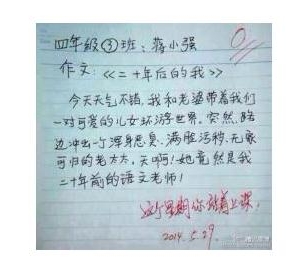 四年级③班：蒋小强
0
作文：《二十年后的我》
今天天气不错，我和老婆带着我们
一对可爱的儿女环游世界。突然，路
边冲出一个浑身恶臭、满脸污秽、无家
可归的老太太，天啊！她竟然是我
二十年前的语文老师！
这个星期你站着上课。
2014.5.29.